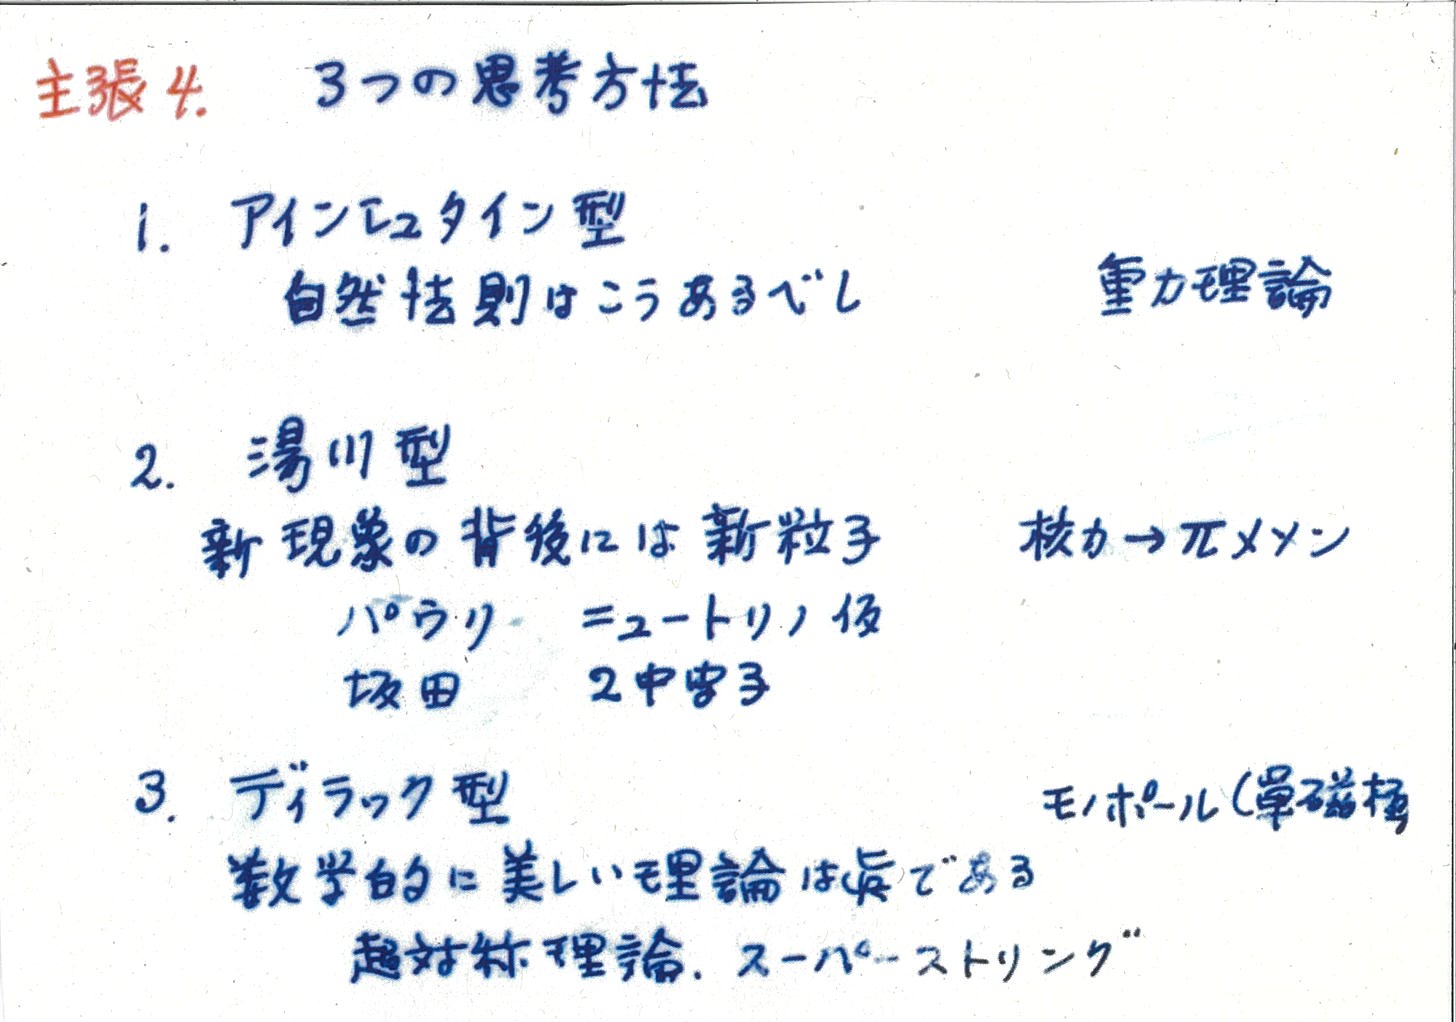 主張4. 3つの思考方法
1. アインシュタイン型
自然法則はこうあるべし 重力理論
2. 湯川型
新現象の背後には新粒子 核力→π メソン
パウリ ニュートリノ仮
坂田 2中間子
3. ディラック型 モノポール(單磁極
数学的に美しい理論は真である
超対称理論. スーパーストリング